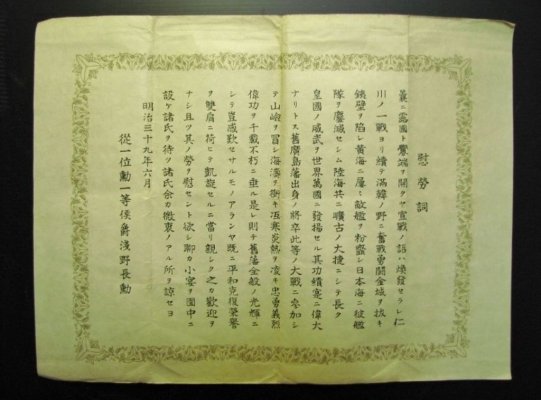 慰勞詞
曩ニ露國ト釁端ヲ開クヤ宣戰ノ詔ハ煥發セラレ仁
川ノ一戰ヨリ續テ滿韓ノ野ニ奮戰勇鬪金城ヲ拔キ
鐵壁ヲ陷レ黃海ニ屢ミ敵艦ヲ粉韲シ日本海ニ彼艦
隊ヲ鏖滅セシム陸海共ニ曠古ノ大捷ニシテ長ク
皇國ノ威武ヲ世界萬國ニ發揚セル其功績寔ニ偉大
ナリトス舊廣島藩出身ノ將卒此等ノ大戰ニ參加シ
テ山嶮ヲ冒シ海濤ヲ衝キ冱寒炎熱ヲ凌キ忠勇義烈
偉功ヲ千載不朽ニ垂ル是レ則チ舊藩全般ノ光輝ニ
シテ豈感歎セサルモノアランヤ既ニ平和克復榮譽
ヲ雙肩ニ荷ヒテ凱旋セルニ當リ親シク之カ歡迎ヲ
ナシ且ツ其ノ勞ヲ慰セント欲シ聊カ小宴ヲ園中ニ
設ケ諸氏ヲ待ツ諸氏余カ微衷ノアル所ヲ諒セヨ
明治三十九年六月
從一位勳一等侯爵淺野長勳